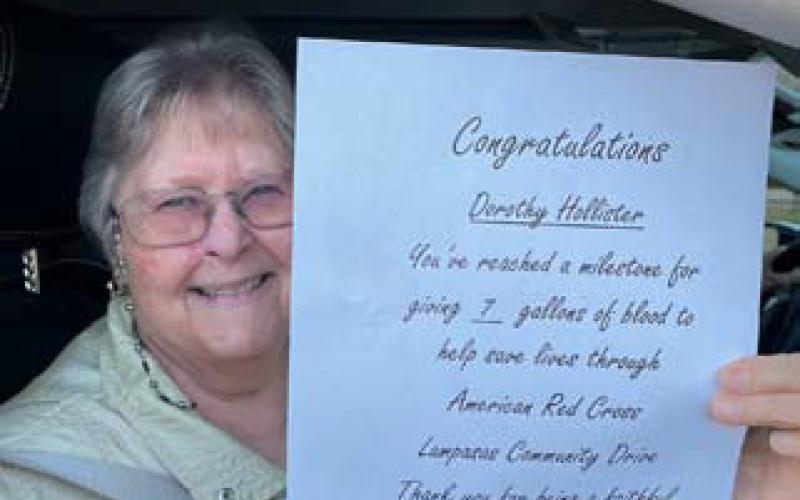 Congratulations
Dorothy Hollister
You've reached a milestone for
giving 7 gallons of blood to
help save lives through
American Red Cross
Lampasas Community Drive
Thank you for being a faithful